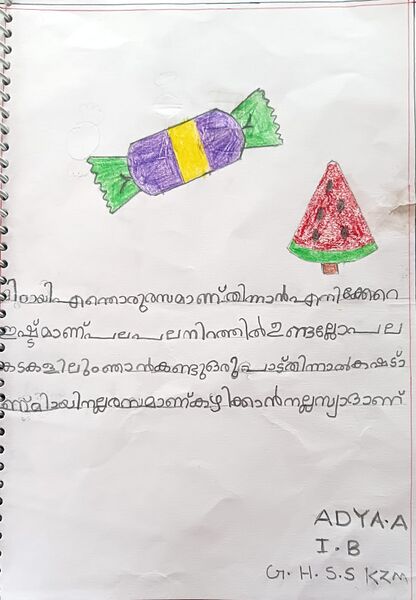 മിഠായി എന്തൊരു രസമാണ് തിന്നാൻ എനിക്കേറെ
ഇഷ്ടമാണ് പല പല നിറത്തിൽ ഉണ്ടല്ലോ പല
കടകളിലും ഞാൻ കണ്ടു ഒരുപാട് തിന്നാൽ കഷ്ടാ
ണ് മിഠായി നല്ല രസമാണ് കഴിക്കാൻ നല്ല സ്വാദാണ്
ADYA.A
I.B
G.H.S.S KZM